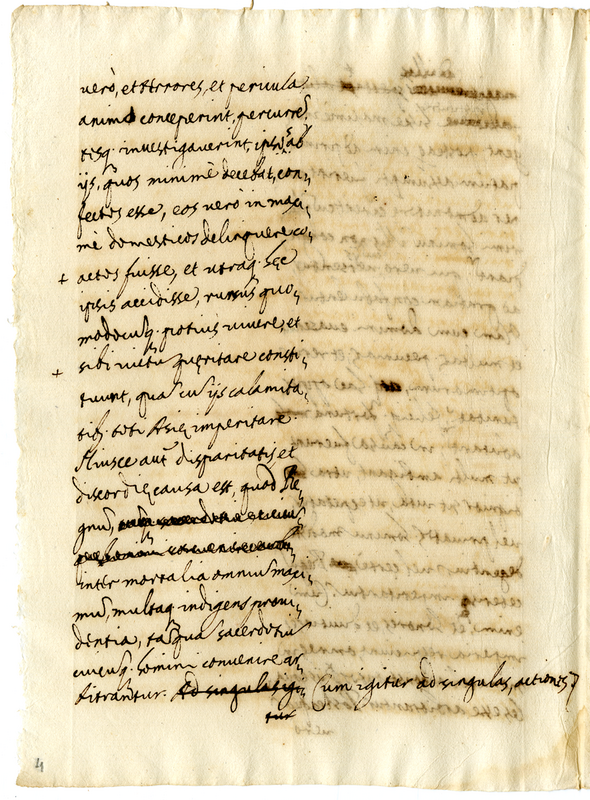 verò, et terrores, et pericula
animo conceperint, percurrēs
tisq; investigaverint, ipsos ab
ijs, quos minimè decebat, con,
fectos esse, eos verò in maxi,
mè domesticos delinquere co,
+ actos fuisse, et utraq; hęc
ipsis accidisse, rursus quo,
modocūq; potius vivere, et
+ sibi victū quęritare consti,
tuunt, quā cū ijs calamita,
tibꝫ toti Asię imperitare.
Huisce aūt disparitatis, et
discordię causa est, quod Re,
gnū,
inter mortalia omniū maxi,
mū, multaq; indigens provi,
dentia, tāquā sacerdotiū
cuicūq; homini convenire ar,
bitrantur. Ad singulas igi, Cum igitur ad singulas, actiones,
tur
4